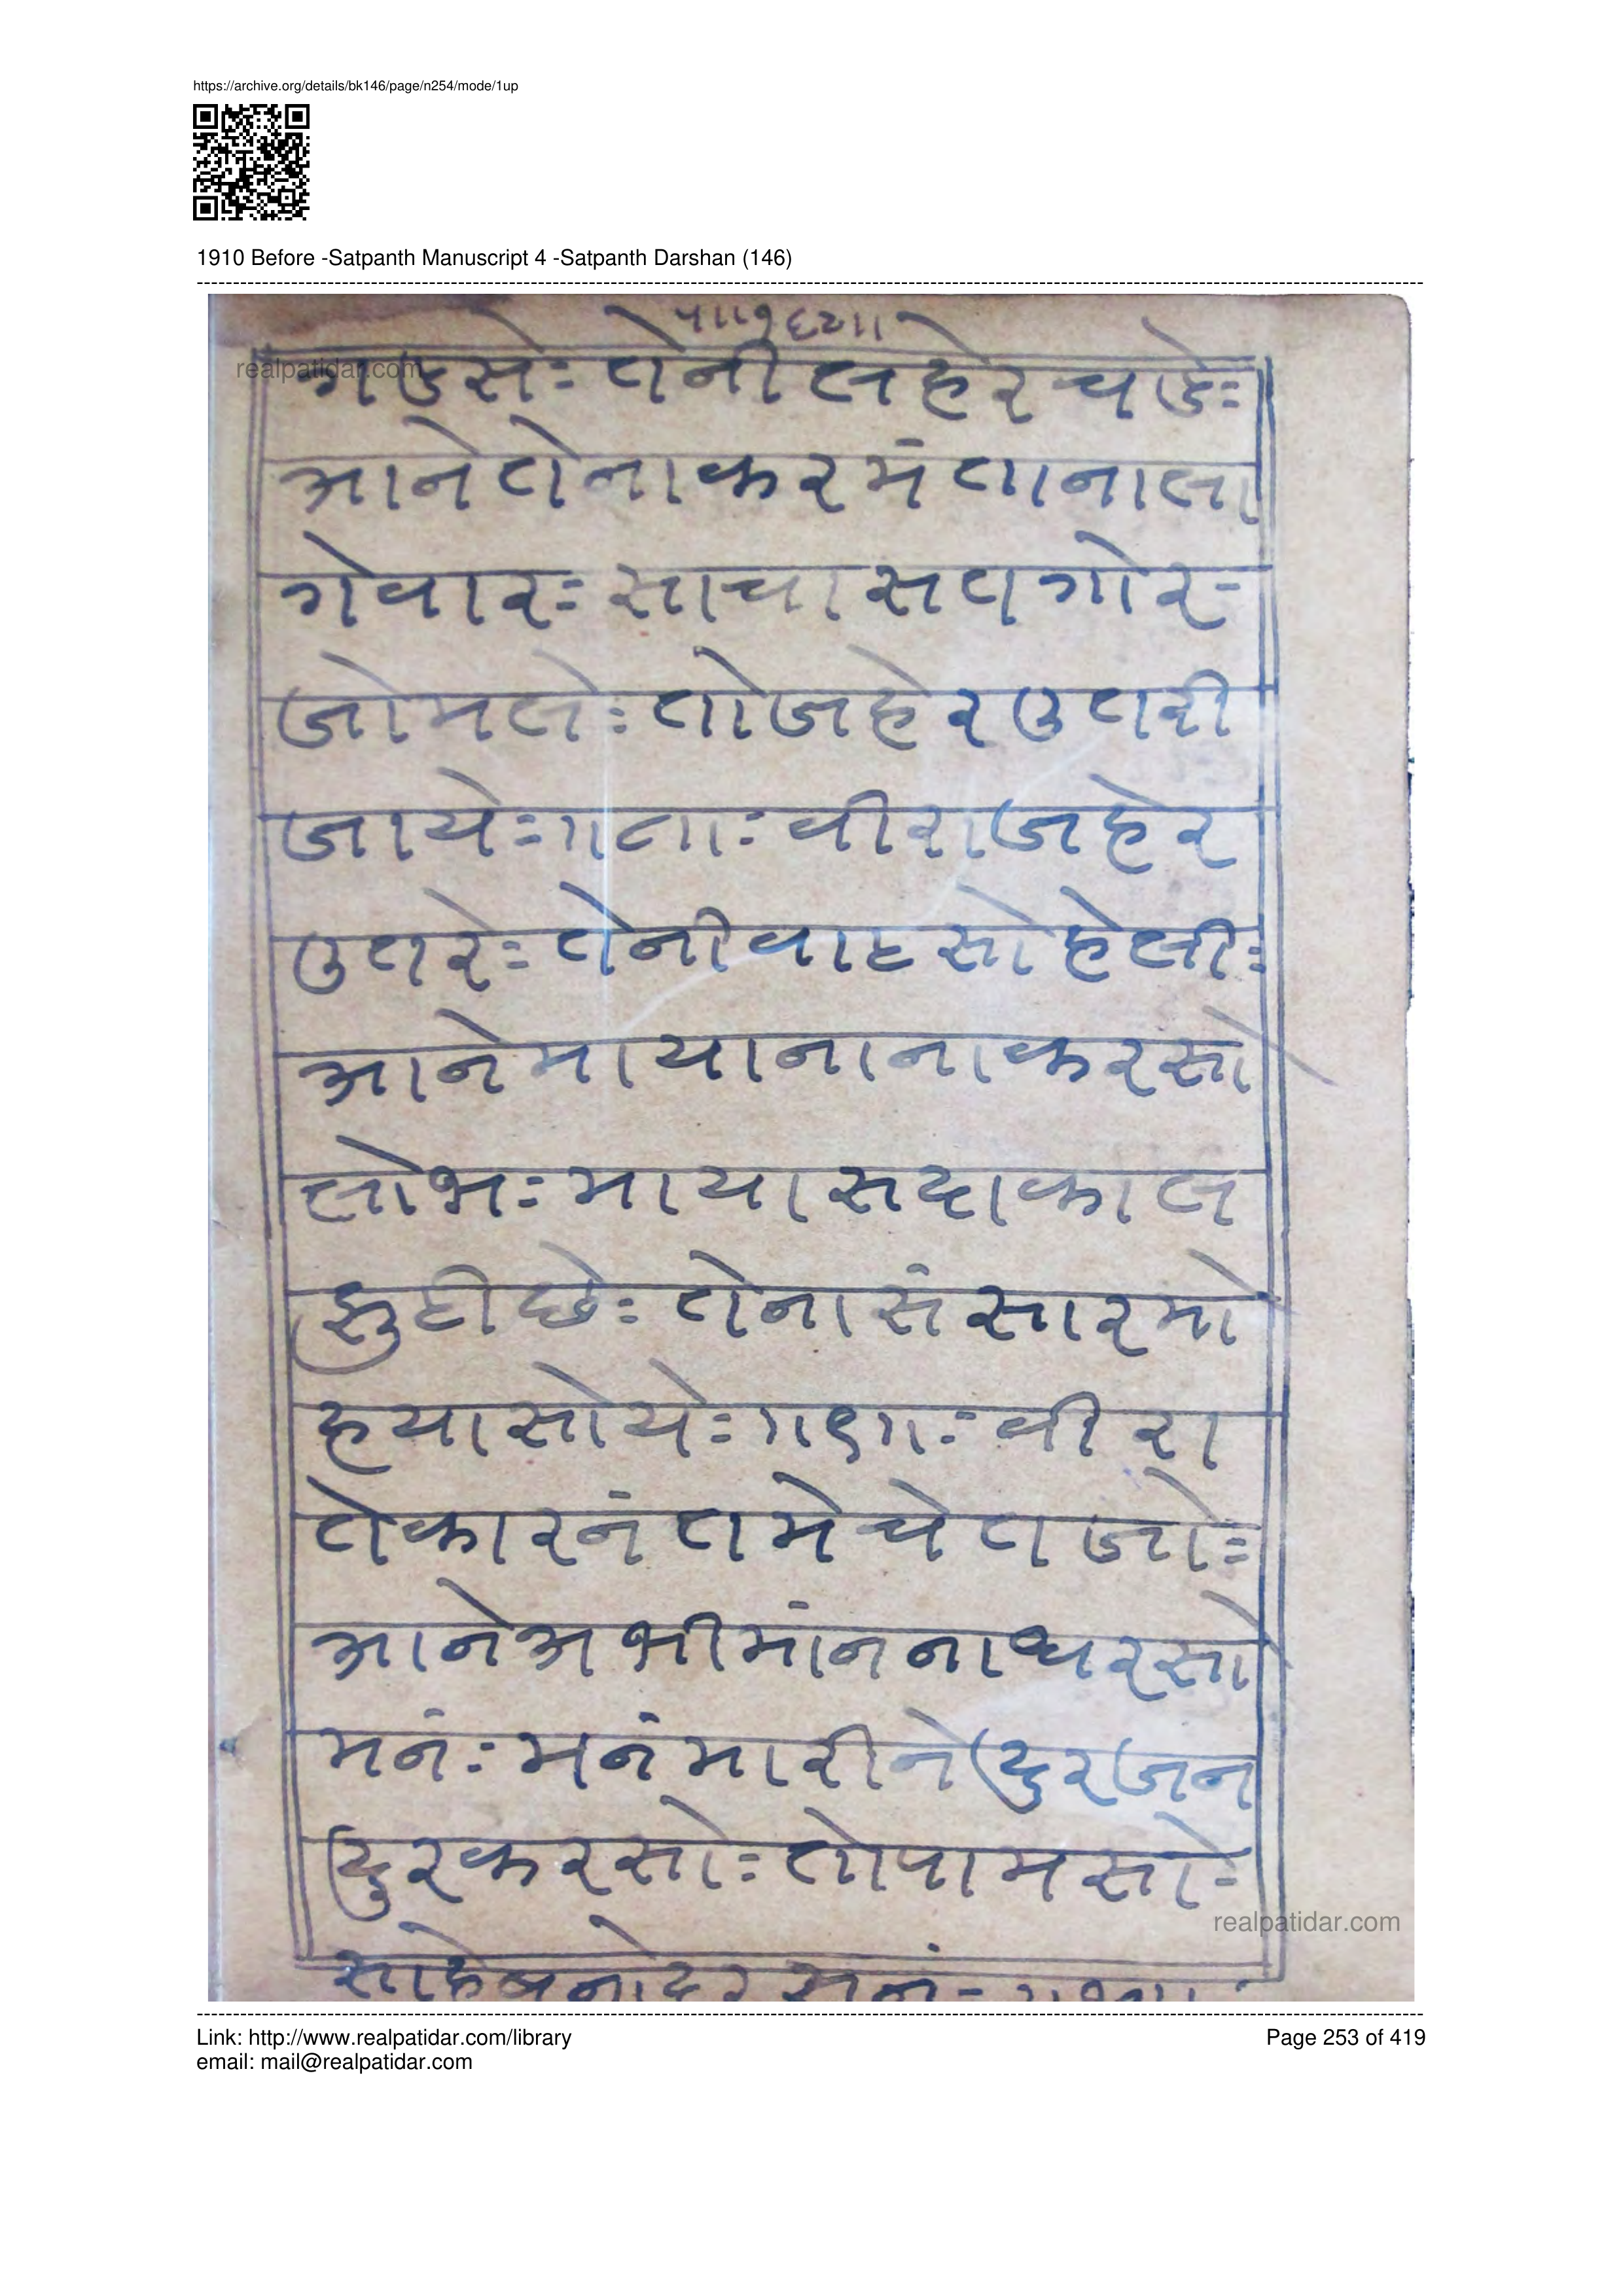 https://archive.org/details/bk146/page/n254/mode/1up
1910 Before -Satpanth Manuscript 4 -Satpanth Darshan (146)
realpatidar.com
गडसे= तेनी लहेर चडे=
आने तेना करमं ताना ला
गे वार= साचा सत गोर=
जो मले= तो जहेर उतरी
जाये=।ા८ાा= वीरा जहेर
उतरे= तेनी वाट सोहेली=
आने माया ना ना करसो
लोभ= माया सदा काल
झुटी छे= तेना संसार मो
हया सोये=।ા९ાा= वीरा
ते कारनं तमे चेतजो=
आने अभीमांन ना धरसो
मनं= मनं मारीने दुरजन
दुर करसो= तो पामसो=
साहेबनो दरसनं=
realpatidar.com
Link: http://www.realpatidar.com/library
Page 253 of 419
email: mail@realpatidar.com